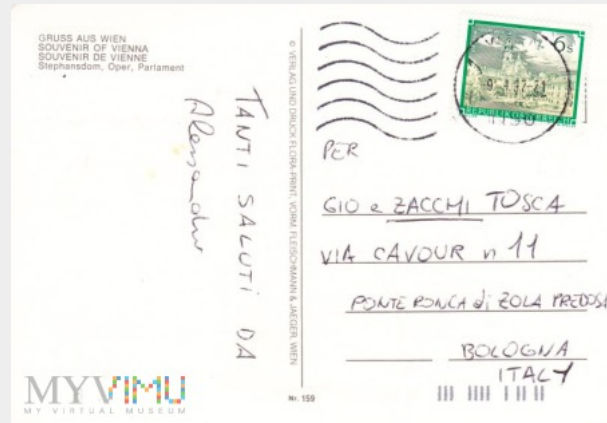 GRUSS AUS WIEN
SOUVENIR OF VIENNA
SOUVENIR DE VIENNE
Stephansdom, Oper, Parlament
TANTI SALUTI DA
Alessandro
© VERLAG UND DRUCK FLORA-PRINT, VORM. FLEISCHMANN & JAEGER, WIEN
Nr. 159
6s
REPUBLIK ÖSTERREICH
1190
PER
GIO e ZACCHI TOSCA
VIA CAVOUR n 11
PONTE RONCA di ZOLA PREDOSA
BOLOGNA
ITALY
MYVIMU
MY VIRTUAL MUSEUM